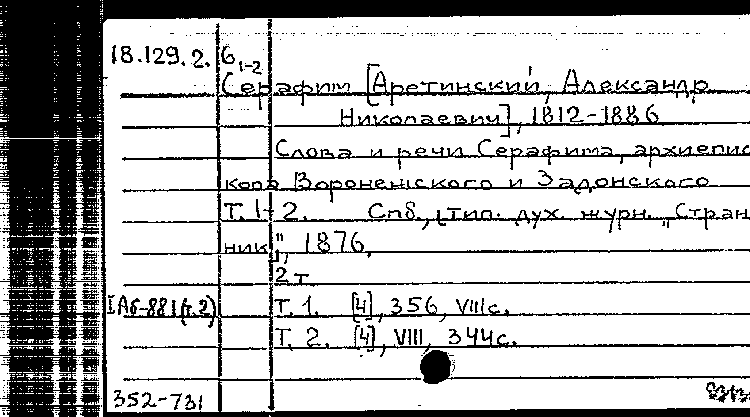 18.129.2. 6 1-2
Серафим [Аретинский, Александр
Николаевич], 1812-1886
Слова и речи Серафима, архиепис
копа Воронежского и Задонского
Т. 1-2. Спб., тип. дух. журн. „Стран
ник", 1876.
2 т.
IАб-881(т.2) Т. 1. [4], 356, VIII с.
Т. 2. [4], VIII, 344 с.
352-731